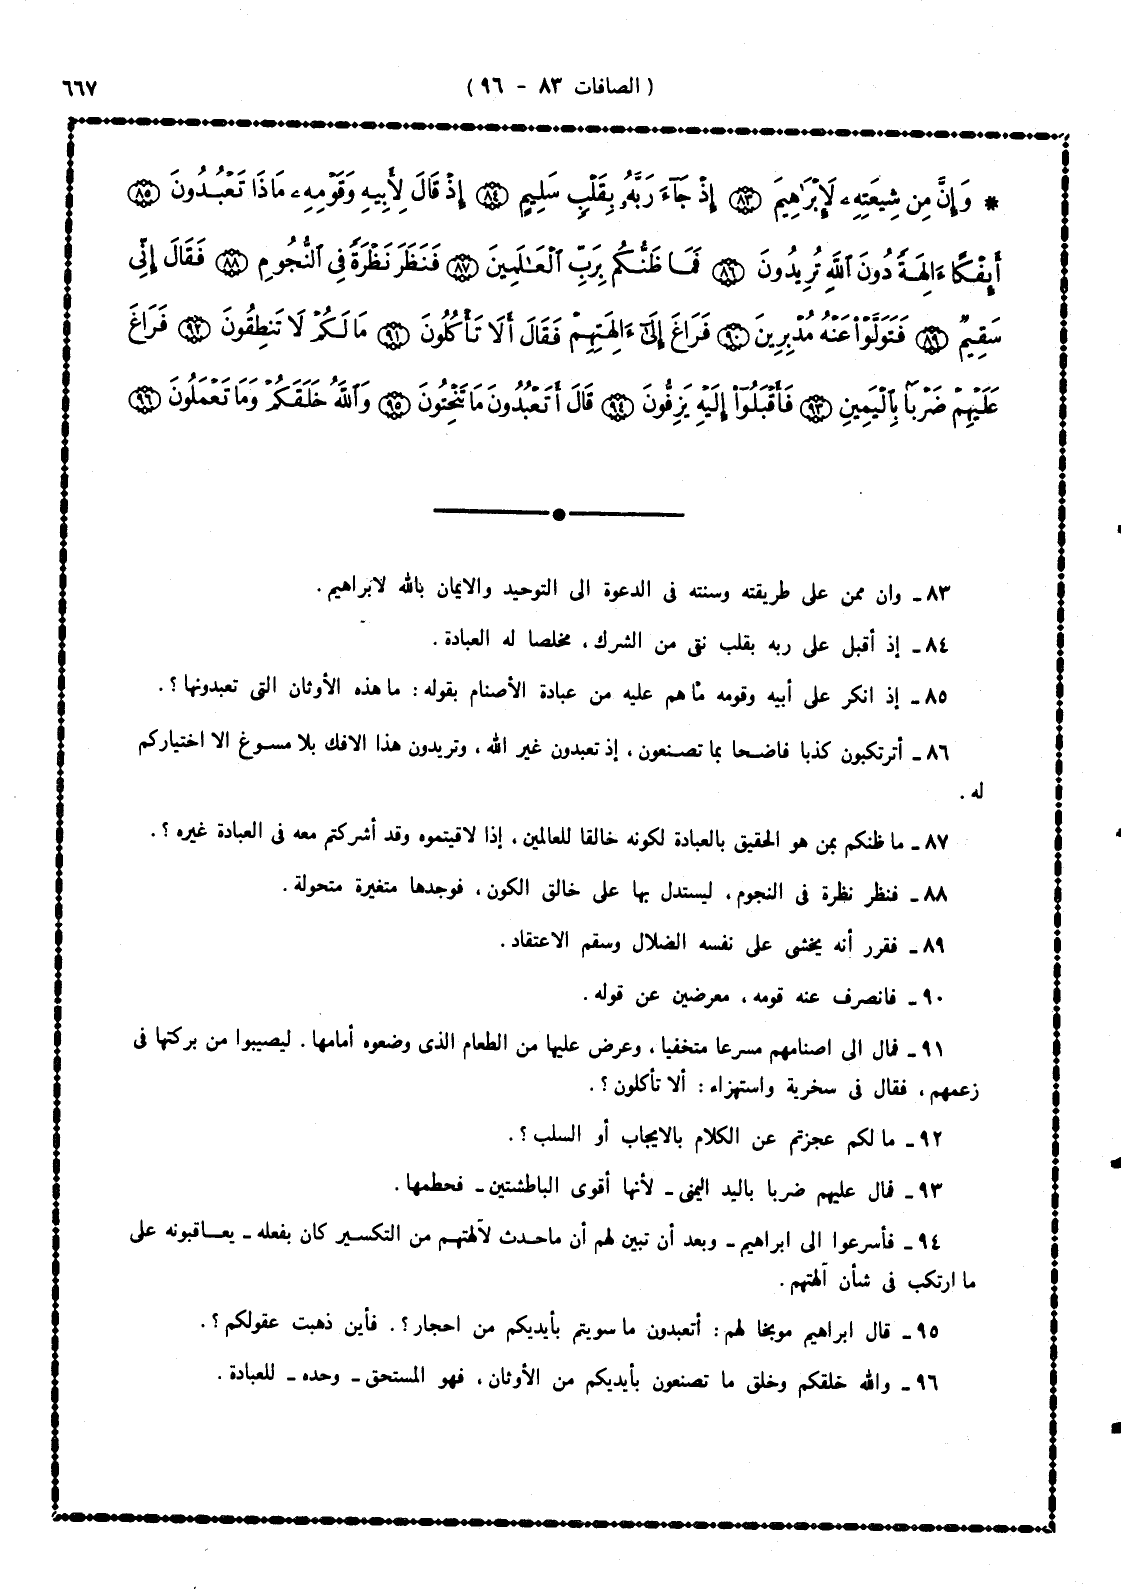 ( الصافات ٨٣ - ٩٦ )
٦٦٧
* وَإِنَّ مِن شِيعَتِهِۦ لَإِبْرَٰهِيمَ ٨٣ إِذْ جَآءَ رَبَّهُۥ بِقَلْبٍ سَلِيمٍ ٨٤ إِذْ قَالَ لِأَبِيهِ وَقَوْمِهِۦ مَاذَا تَعْبُدُونَ ٨٥
أَئِفْكًا ءَالِهَةً دُونَ ٱللَّهِ تُرِيدُونَ ٨٦ فَمَا ظَنُّكُم بِرَبِّ ٱلْعَٰلَمِينَ ٨٧ فَنَظَرَ نَظْرَةً فِى ٱلنُّجُومِ ٨٨ فَقَالَ إِنِّى
سَقِيمٌ ٨٩ فَتَوَلَّوْا۟ عَنْهُ مُدْبِرِينَ ٩٠ فَرَاغَ إِلَىٰٓ ءَالِهَتِهِمْ فَقَالَ أَلَا تَأْكُلُونَ ٩١ مَا لَكُمْ لَا تَنطِقُونَ ٩٢ فَرَاغَ
عَلَيْهِمْ ضَرْبًۢا بِٱلْيَمِينِ ٩٣ فَأَقْبَلُوٓا۟ إِلَيْهِ يَزِفُّونَ ٩٤ قَالَ أَتَعْبُدُونَ مَا تَنْحِتُونَ ٩٥ وَٱللَّهُ خَلَقَكُمْ وَمَا تَعْمَلُونَ ٩٦
٨٣ ـ وان ممن على طريقته وسنته فى الدعوة الى التوحيد والايمان بالله لابراهيم .
٨٤ ـ إذ أقبل على ربه بقلب نقى من الشرك ، مخلصا له العبادة .
٨٥ ـ إذ انكر على أبيه وقومه ما هم عليه من عبادة الأصنام بقوله : ما هذه الأوثان التى تعبدونها ؟ .
٨٦ ـ أترتكبون كذبا فاضحا بما تصنعون ، إذ تعبدون غير الله ، وتريدون هذا الافك بلا مسوغ الا اختياركم
له .
٨٧ ـ ما ظنكم بمن هو الحقيق بالعبادة لكونه خالقا للعالمين ، إذا لاقيتموه وقد أشركتم معه فى العبادة غيره ؟ .
٨٨ ـ فنظر نظرة فى النجوم ، ليستدل بها على خالق الكون ، فوجدها متغيرة متحولة .
٨٩ ـ فقرر أنه يخشى على نفسه الضلال وسقم الاعتقاد .
٩٠ ـ فانصرف عنه قومه ، معرضين عن قوله .
٩١ ـ فمال الى اصنامهم مسرعا متخفيا ، وعرض عليها من الطعام الذى وضعوه أمامها . ليصيبوا من بركتها فى
زعمهم ، فقال فى سخرية واستهزاء : ألا تأكلون ؟ .
٩٢ ـ ما لكم عجزتم عن الكلام بالايجاب أو السلب ؟ .
٩٣ ـ فمال عليهم ضربا باليد اليمنى ـ لأنها أقوى الباطشتين ـ فحطمها .
٩٤ ـ فأسرعوا الى ابراهيم ـ وبعد أن تبين لهم أن ماحدث لآلهتهم من التكسير كان بفعله ـ يعاقبونه على
ما ارتكب فى شأن آلهتهم .
٩٥ ـ قال ابراهيم موبخا لهم : أتعبدون ما سويتم بأيديكم من احجار ؟ . فأين ذهبت عقولكم ؟ .
٩٦ ـ والله خلقكم وخلق ما تصنعون بأيديكم من الأوثان ، فهو المستحق ـ وحده ـ للعبادة .